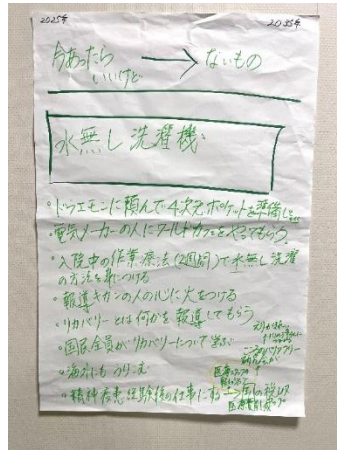 2025年 2035年
今あったらいいけど → ないもの
水無し洗濯機
・ドラエモンに頼んで4次元ポケットを準備し
・電気メーカーの人にワールドカフェをやってもらう。
・入院中の作業療法(2週間)で水無し洗濯
の方法を身につける
・報導キカンの人の心に火をつける
・リカバリーとは何かを報導してもらう
・国民全員がリカバリーについて学ぶ
・海外にもうりこむ
・精神疾患経験後の仕事にする→国の税収